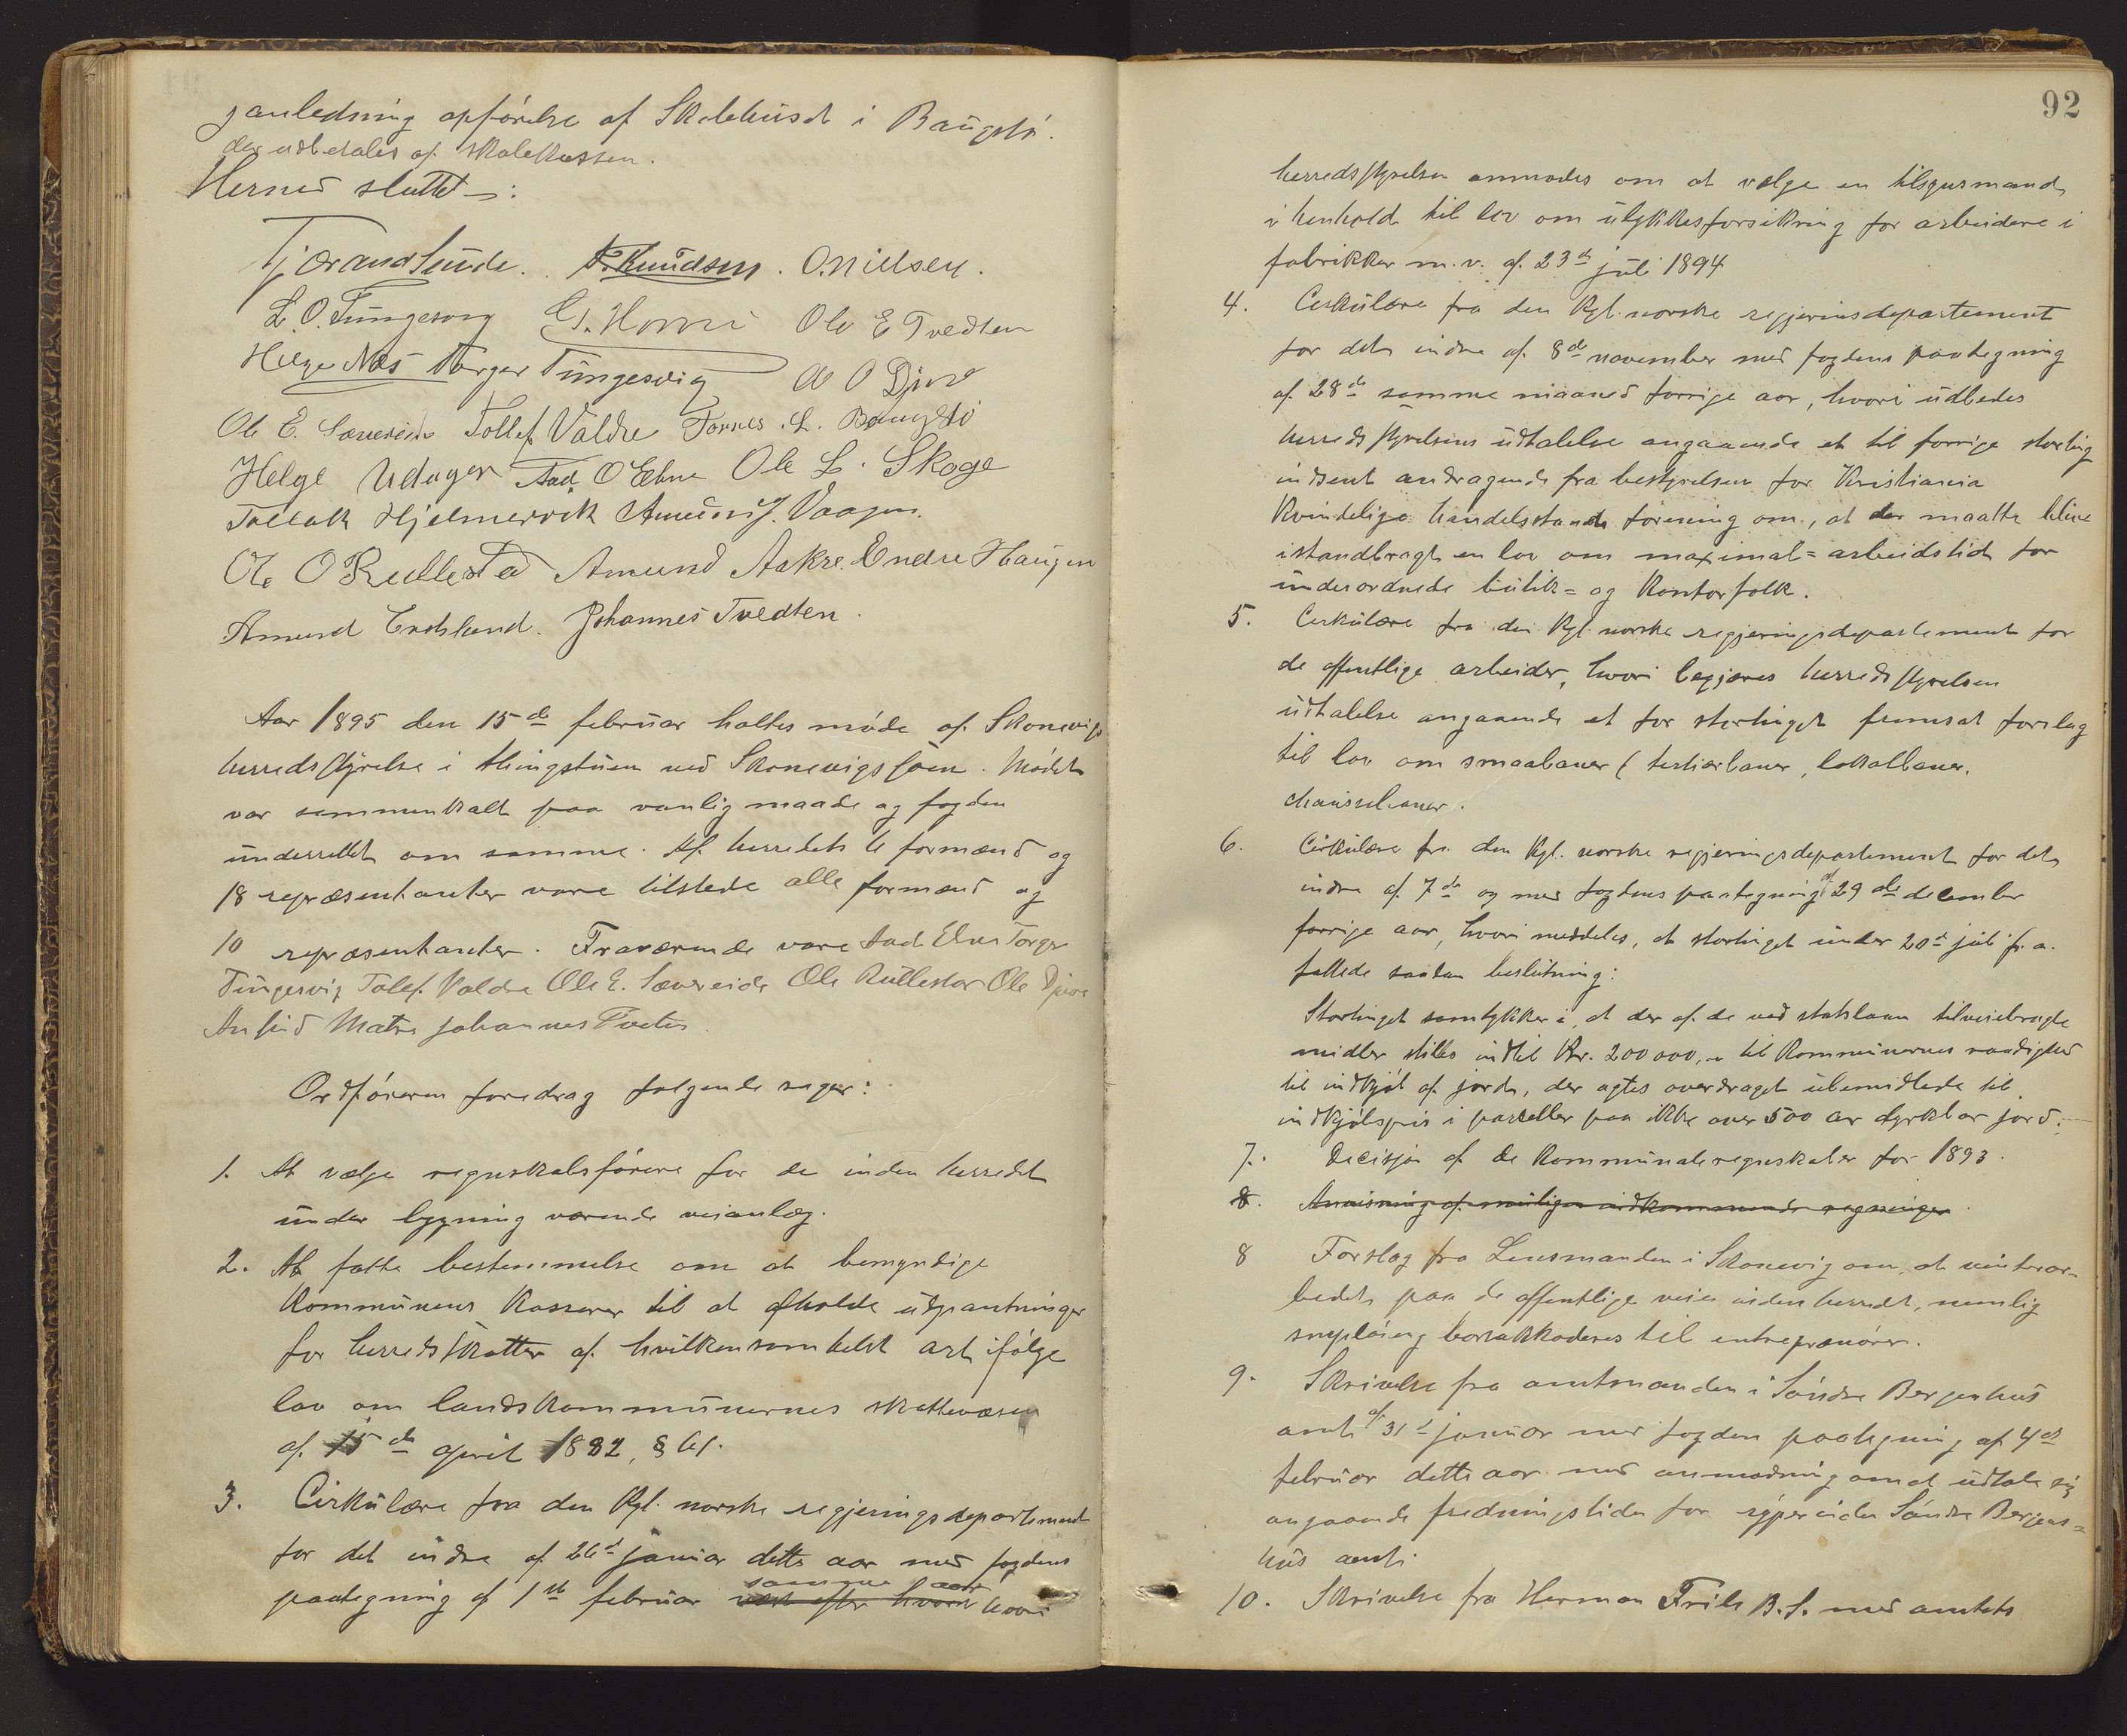 i anledning opførelse af Skolehuset i Baugstø.
der udbetales af skolekassen.
Hermed sluttet:
Tjerand Sunde. Knudsen. O. Nielsen.
L. O. Tungesvig G. Honri Ole E Tvedten
Helge Næs Torger Tungesvig Ole O Djuve
Ole E. Sævereide Tollef Valdre Tormes L. Baugstø
Helge Udager Aad O Ebne Ole L. Skoge
Tollak Hjelmervik Amund J. Vaagen.
Ole O Rullestad Amund Aakre. Endre Haugen
Amund Johannes Tvedten.
Aar 1895 den 15de februar holtes møde af Skonevigs
herredsstyrelse i thingstuen ved Skonevigssøen. Mødet
var sammenkalt paa vanlig maade og fogden
underrettet om samme. Af herredets 6 formænd og
18 repræsentanter vare tilstede alle formænd og
10 repræsentanter. Fraværende vare Aad Ebne Torger
Tungesvig Tolef Valdre Ole E. Sævereide Ole Rullestad Ole Djuve
Anfind Matre Johannes Tveten.
Ordføreren foredrag følgende sager:
1. At vælge regnskabsførere for de inden herredet
under bygning værende veianlæg.
2. At fatte bestemmelse om at bemyndige
kommunens kasserer til at afholde udpantninger
for herredsskatter af hvilkensomhelst art ifølge
lov om landskommunernes skattevæsen
af 15de april 1882, § 61.
3. Cirkulære fra den kgl. norske regjeringsdepartement
for det indre af 26de januar dette aar med fogdens
paategning af 1ste februar samme aar hvori
92
herredsstyrelsen anmodes om at vælge en tilsynsmand
i henhold til lov om ulykkesforsikring for arbeidere i
fabrikker m. v. af 23de juli 1894
4. Cirkulære fra den kgl. norske regjerinsdepartement
for det indre af 8de november med fogdens paategning
af 28de samme maaned forrige aar, hvori udbedes
herredsstyrelsens udtalelse angaaende et til forrige storting
indsent andragende fra bestyrelsen for Kristiania
kvindelige handelsstands forening om, at der maatte blive
istandbragt en lov om maximal=arbeidstid for
underordnede butik= og kontorfolk.
5. Cirkulære fra den kgl. norske regjeringsdepartement for
de offentlige arbeider, hvori begjæres herredsstyrelsen
udtalelse angaaende et for stortinget fremsat forslag
til lov om smaabaner (tertiærbaner, lokalbaner,
chausseebaner.
6. Cirkulære fra den kgl. norske regjeringsdepartement for det
indre af 7de og med fogdens paategning af 29de december
forrige aar, hvori meddeles, at stortinget under 20de juli f. a.
fattede saadan beslutning:
Stortinget samtykker i, at der af de ved statslaan tilveiebragte
midler stilles indtil Kr. 200000,- til kommunernes raadighed
til indkjøb af jord, der agtes overdraget ubemidlede til
indkjøbspris i parceller paa ikke over 500 ar dyrkbar jord.
7. Decisjon af de kommunale regnskaber for 1893.
8. Anvisning af mulige indkommende regninger
8 Forslag fra Lensmanden i Skonevig om, at vinterar-
beidet paa de offentlige veie inden herredet, nemlig
snepløing bortakkoderes til entreprenører.
9. Skrivelse fra amtmanden i Søndre Bergenhus
amt af 31de januar med fogdens paategning af 4de
februar dette aar med anmodning om at udtale sig
angaaende fredningstiden for ryper inden Søndre Bergen=
hus amt.
10. Skrivelse fra Herman Friele B. S. med amtets